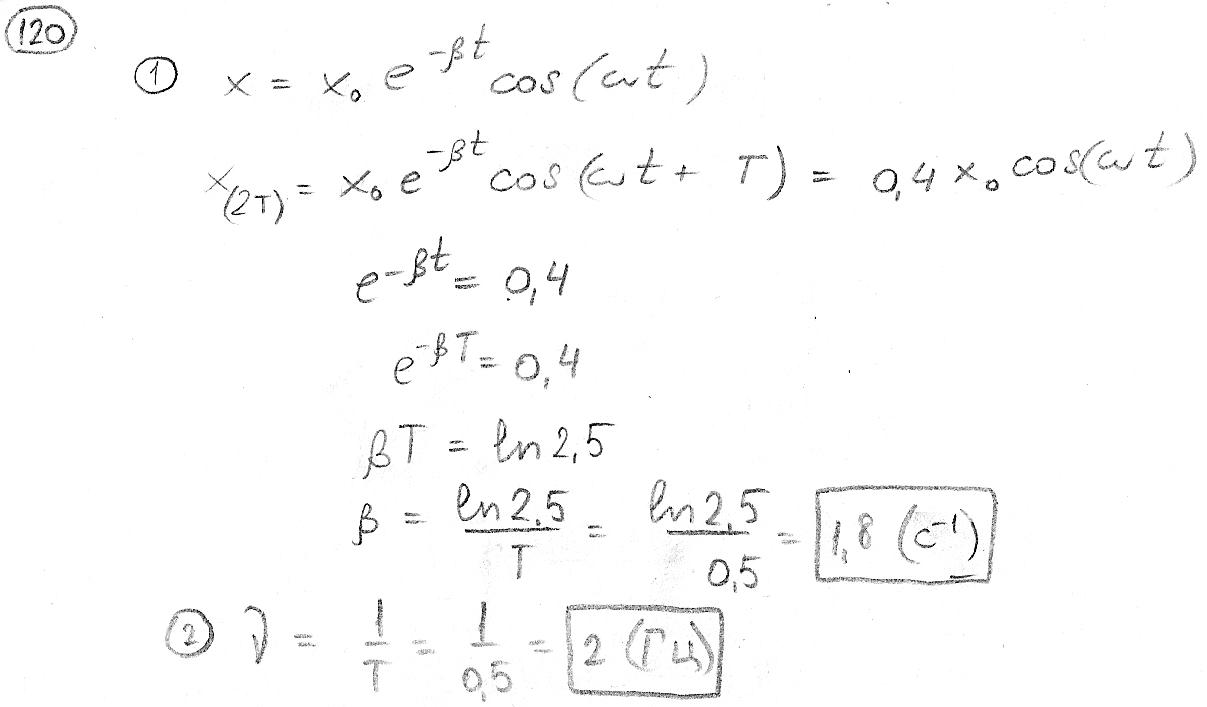 120
① x = x₀ e^{-βt} cos(ωt)
x_{(2T)} = x₀ e^{-βt} cos(ωt + T) = 0,4 x₀ cos(ωt)
e^{-βt} = 0,4
e^{-βT} = 0,4
βT = ln 2,5
β = ln 2,5 / T = ln 2,5 / 0,5 = 1,8 (с⁻¹)
② ν = 1/T = 1/0,5 = 2 (Гц)